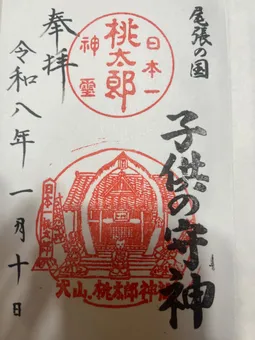 尾張の国
子供の守神
日本一
桃太郎
神靈
奉拝
令和八年一月十日
犬山.桃太郎神